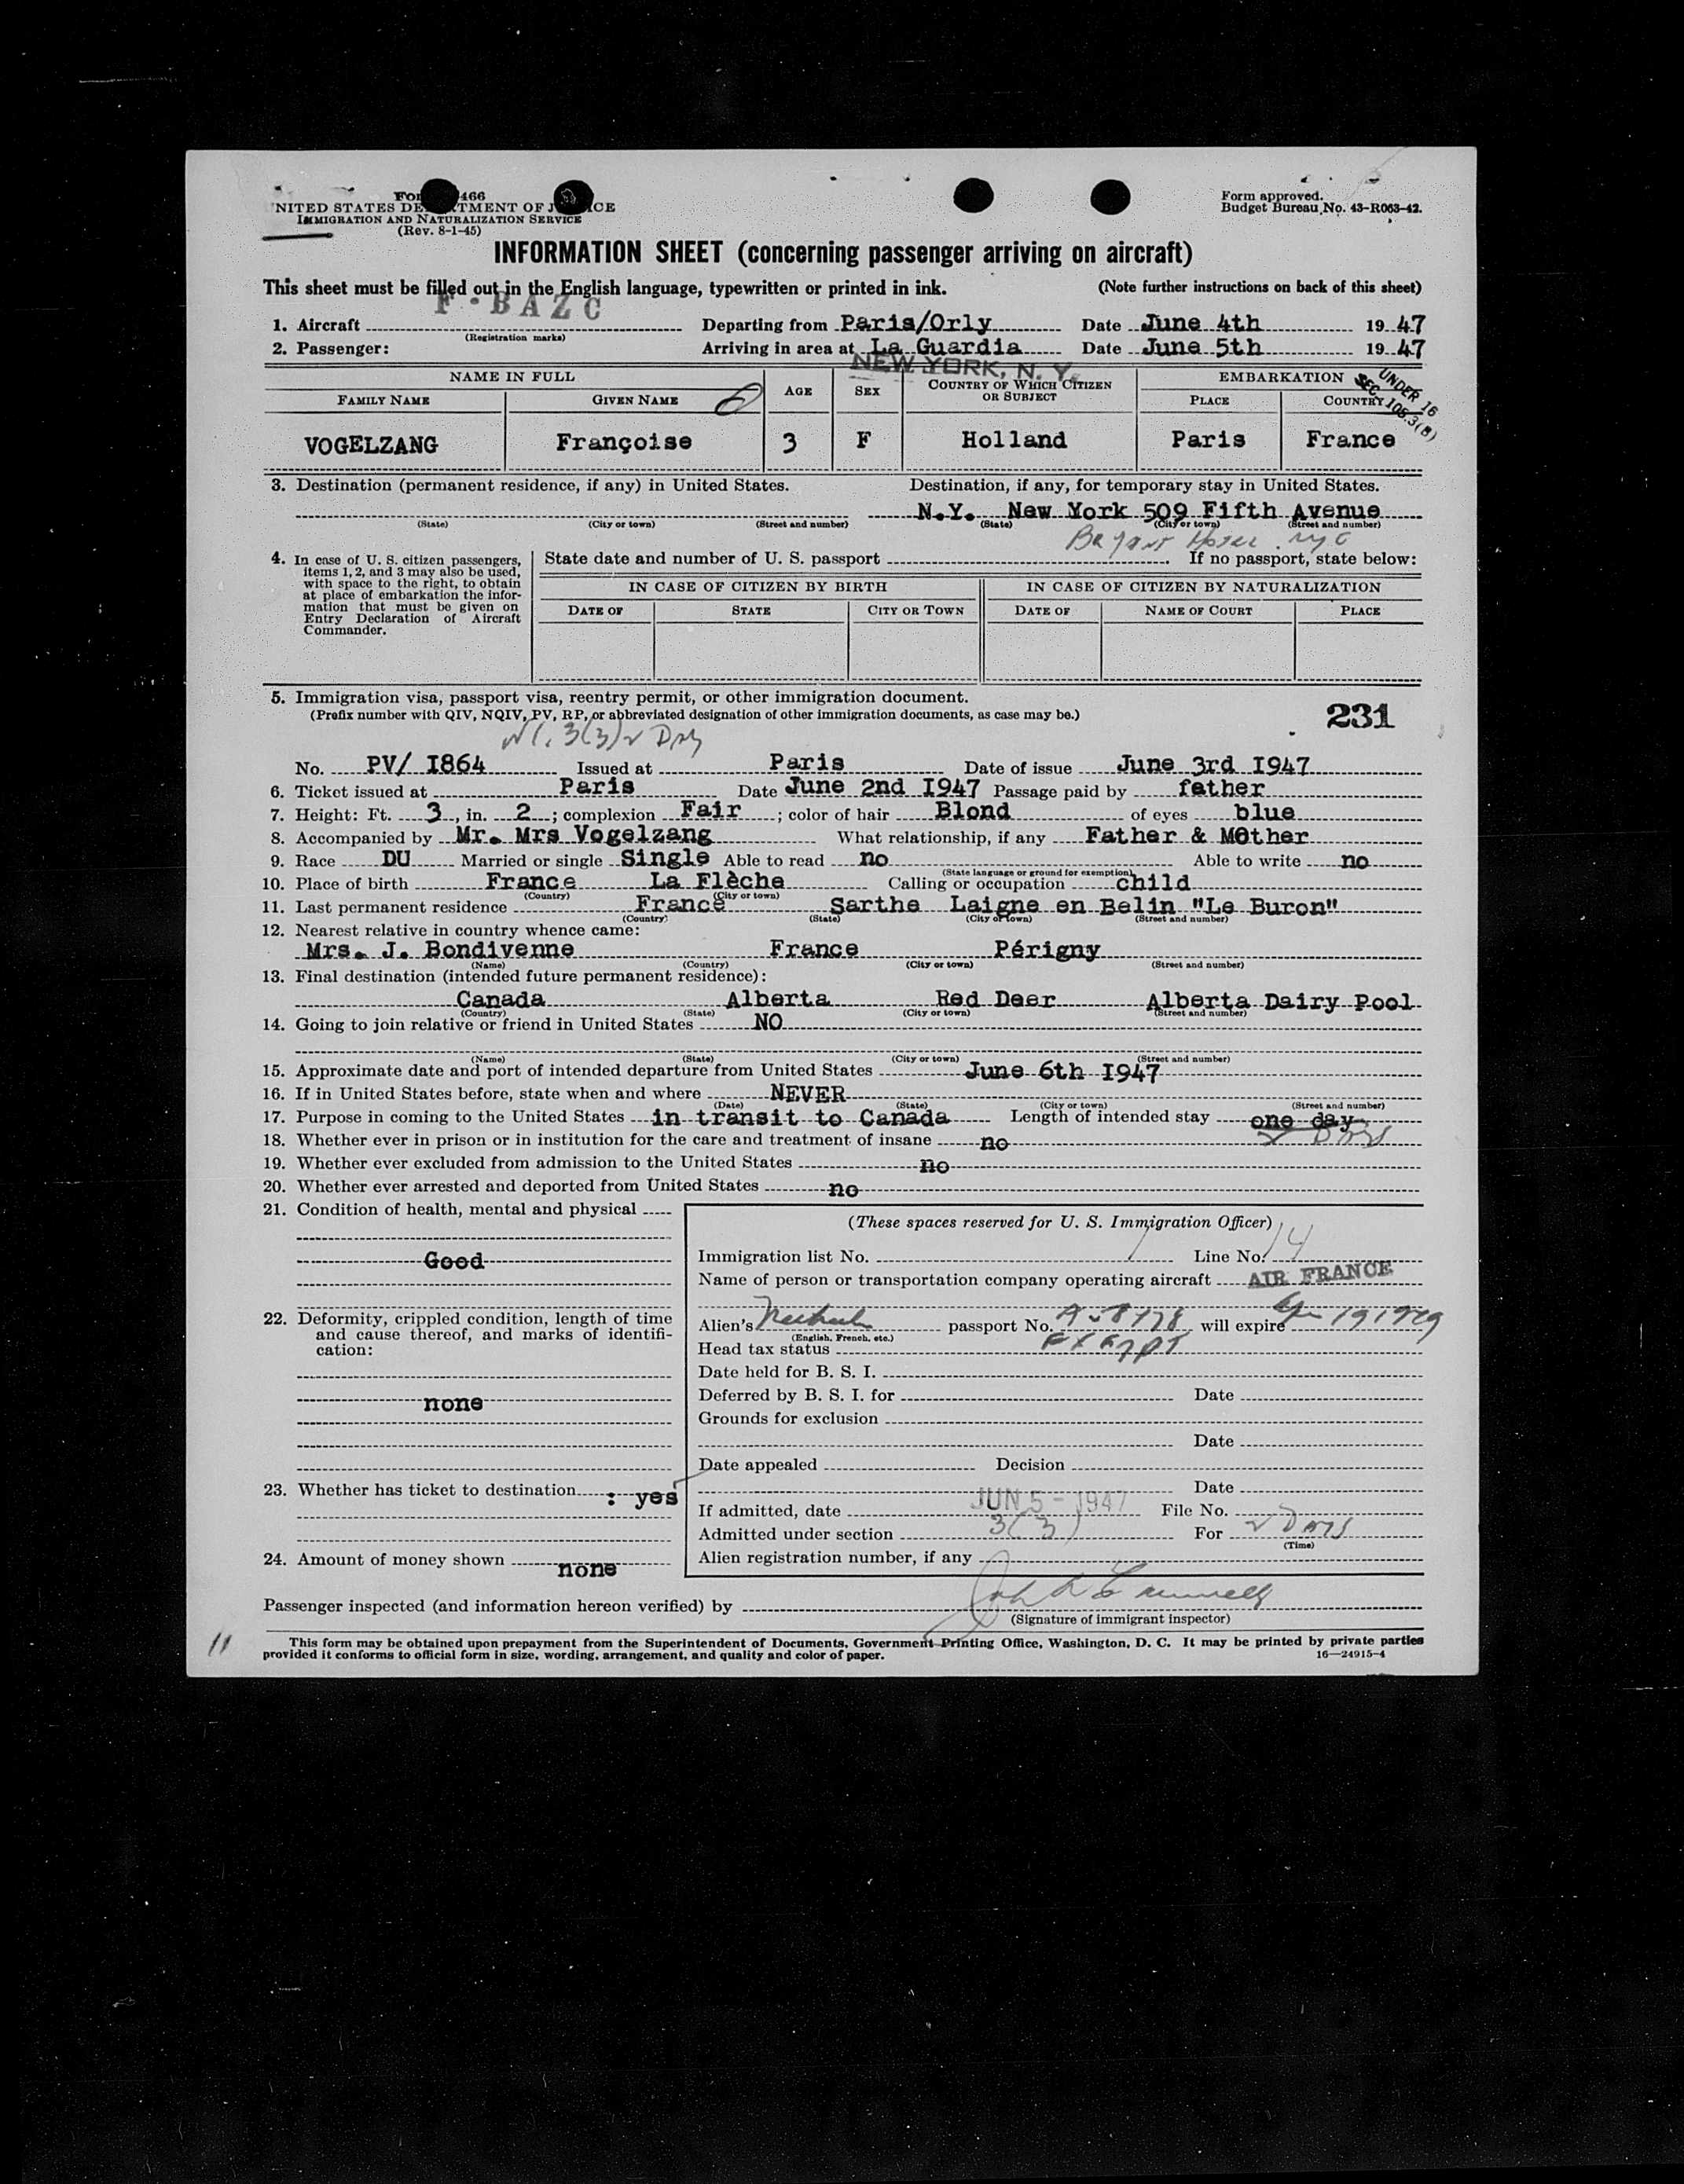 Form 466
UNITED STATES DEPARTMENT OF JUSTICE
IMMIGRATION AND NATURALIZATION SERVICE
(Rev. 8-1-45)
Form approved.
Budget Bureau No. 43-R063-42.
INFORMATION SHEET (concerning passenger arriving on aircraft)
This sheet must be filled out in the English language, typewritten or printed in ink. (Note further instructions on back of this sheet)
F-BAZC
1. Aircraft Departing from Paris/Orly Date June 4th 1947
(Registration marks)
2. Passenger: Arriving in area at La Guardia Date June 5th 1947
NEW YORK, N. Y.
UNDER 16
SEC. 105.3(B)
NAME IN FULL AGE SEX COUNTRY OF WHICH CITIZEN OR SUBJECT EMBARKATION
FAMILY NAME GIVEN NAME PLACE COUNTRY
VOGELZANG Françoise 3 F Holland Paris France
3. Destination (permanent residence, if any) in United States. Destination, if any, for temporary stay in United States.
N.Y. New York 509 Fifth Avenue
(State) (City or town) (Street and number) (State) (City or town) (Street and number)
Bryant Hotel NYC
4. In case of U. S. citizen passengers, items 1, 2, and 3 may also be used, with space to the right, to obtain at place of embarkation the information that must be given on Entry Declaration of Aircraft Commander.
State date and number of U. S. passport . If no passport, state below:
IN CASE OF CITIZEN BY BIRTH IN CASE OF CITIZEN BY NATURALIZATION
DATE OF STATE CITY OR TOWN DATE OF NAME OF COURT PLACE
5. Immigration visa, passport visa, reentry permit, or other immigration document.
(Prefix number with QIV, NQIV, PV, RP, or abbreviated designation of other immigration documents, as case may be.)
231
3(3) 2 Days
No. PV/ I864 Issued at Paris Date of issue June 3rd I947
6. Ticket issued at Paris Date June 2nd I947 Passage paid by father
7. Height: Ft. 3, in. 2; complexion Fair; color of hair Blond of eyes blue
8. Accompanied by Mr. Mrs Vogelzang What relationship, if any Father & Mother
9. Race DU Married or single Single Able to read no Able to write no
(State language or ground for exemption)
10. Place of birth France La Flèche Calling or occupation child
(Country) (City or town)
11. Last permanent residence France Sarthe Laigne en Belin "Le Buron"
(Country) (State) (City or town) (Street and number)
12. Nearest relative in country whence came:
Mrs. J. Bondivenne France Périgny
(Name) (Country) (City or town) (Street and number)
13. Final destination (intended future permanent residence):
Canada Alberta Red Deer Alberta Dairy Pool
(Country) (State) (City or town) (Street and number)
14. Going to join relative or friend in United States NO
(Name) (State) (City or town) (Street and number)
15. Approximate date and port of intended departure from United States June 6th I947
16. If in United States before, state when and where NEVER
(Date) (State) (City or town) (Street and number)
17. Purpose in coming to the United States in transit to Canada Length of intended stay one day
2 Days
18. Whether ever in prison or in institution for the care and treatment of insane no
19. Whether ever excluded from admission to the United States no
20. Whether ever arrested and deported from United States no
21. Condition of health, mental and physical
Good
22. Deformity, crippled condition, length of time and cause thereof, and marks of identification:
none
23. Whether has ticket to destination : yes
24. Amount of money shown none
(These spaces reserved for U. S. Immigration Officer)
Immigration list No. 1 Line No. 14
Name of person or transportation company operating aircraft AIR FRANCE
Alien's passport No. will expire
(English, French, etc.)
Head tax status EXEMPT
Date held for B. S. I.
Deferred by B. S. I. for Date
Grounds for exclusion
Date
Date appealed Decision
Date
If admitted, date JUN 5 - 1947 File No.
Admitted under section 3(3) For 2 Days
(Time)
Alien registration number, if any
Passenger inspected (and information hereon verified) by
(Signature of immigrant inspector)
11
This form may be obtained upon prepayment from the Superintendent of Documents, Government Printing Office, Washington, D. C. It may be printed by private parties
provided it conforms to official form in size, wording, arrangement, and quality and color of paper. 16—24915-4